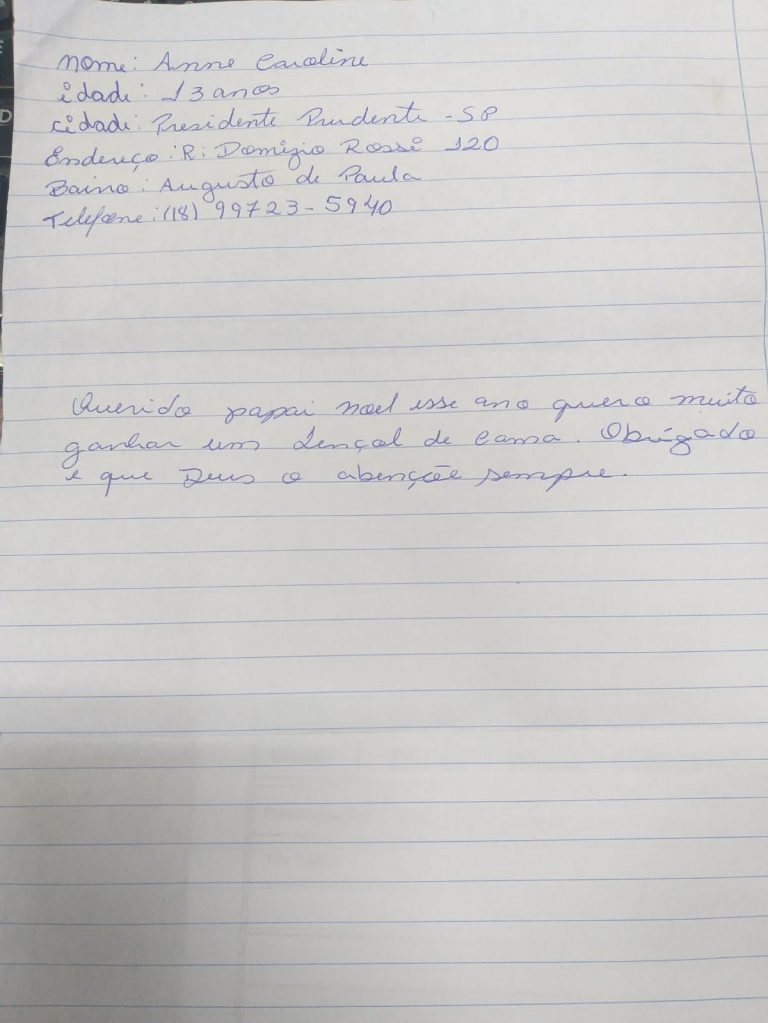 Nome: Anne Caroline
idade: 13 anos
cidade: Presidente Prudente - SP
Endereço: R: Domizio Rossi 120
Bairro: Augusto de Paula
Telefone: (18) 99723-5940
Querido papai noel esse ano quero muito
ganhar um Lençol de cama. Obrigado
e que Deus o abençõe sempre.